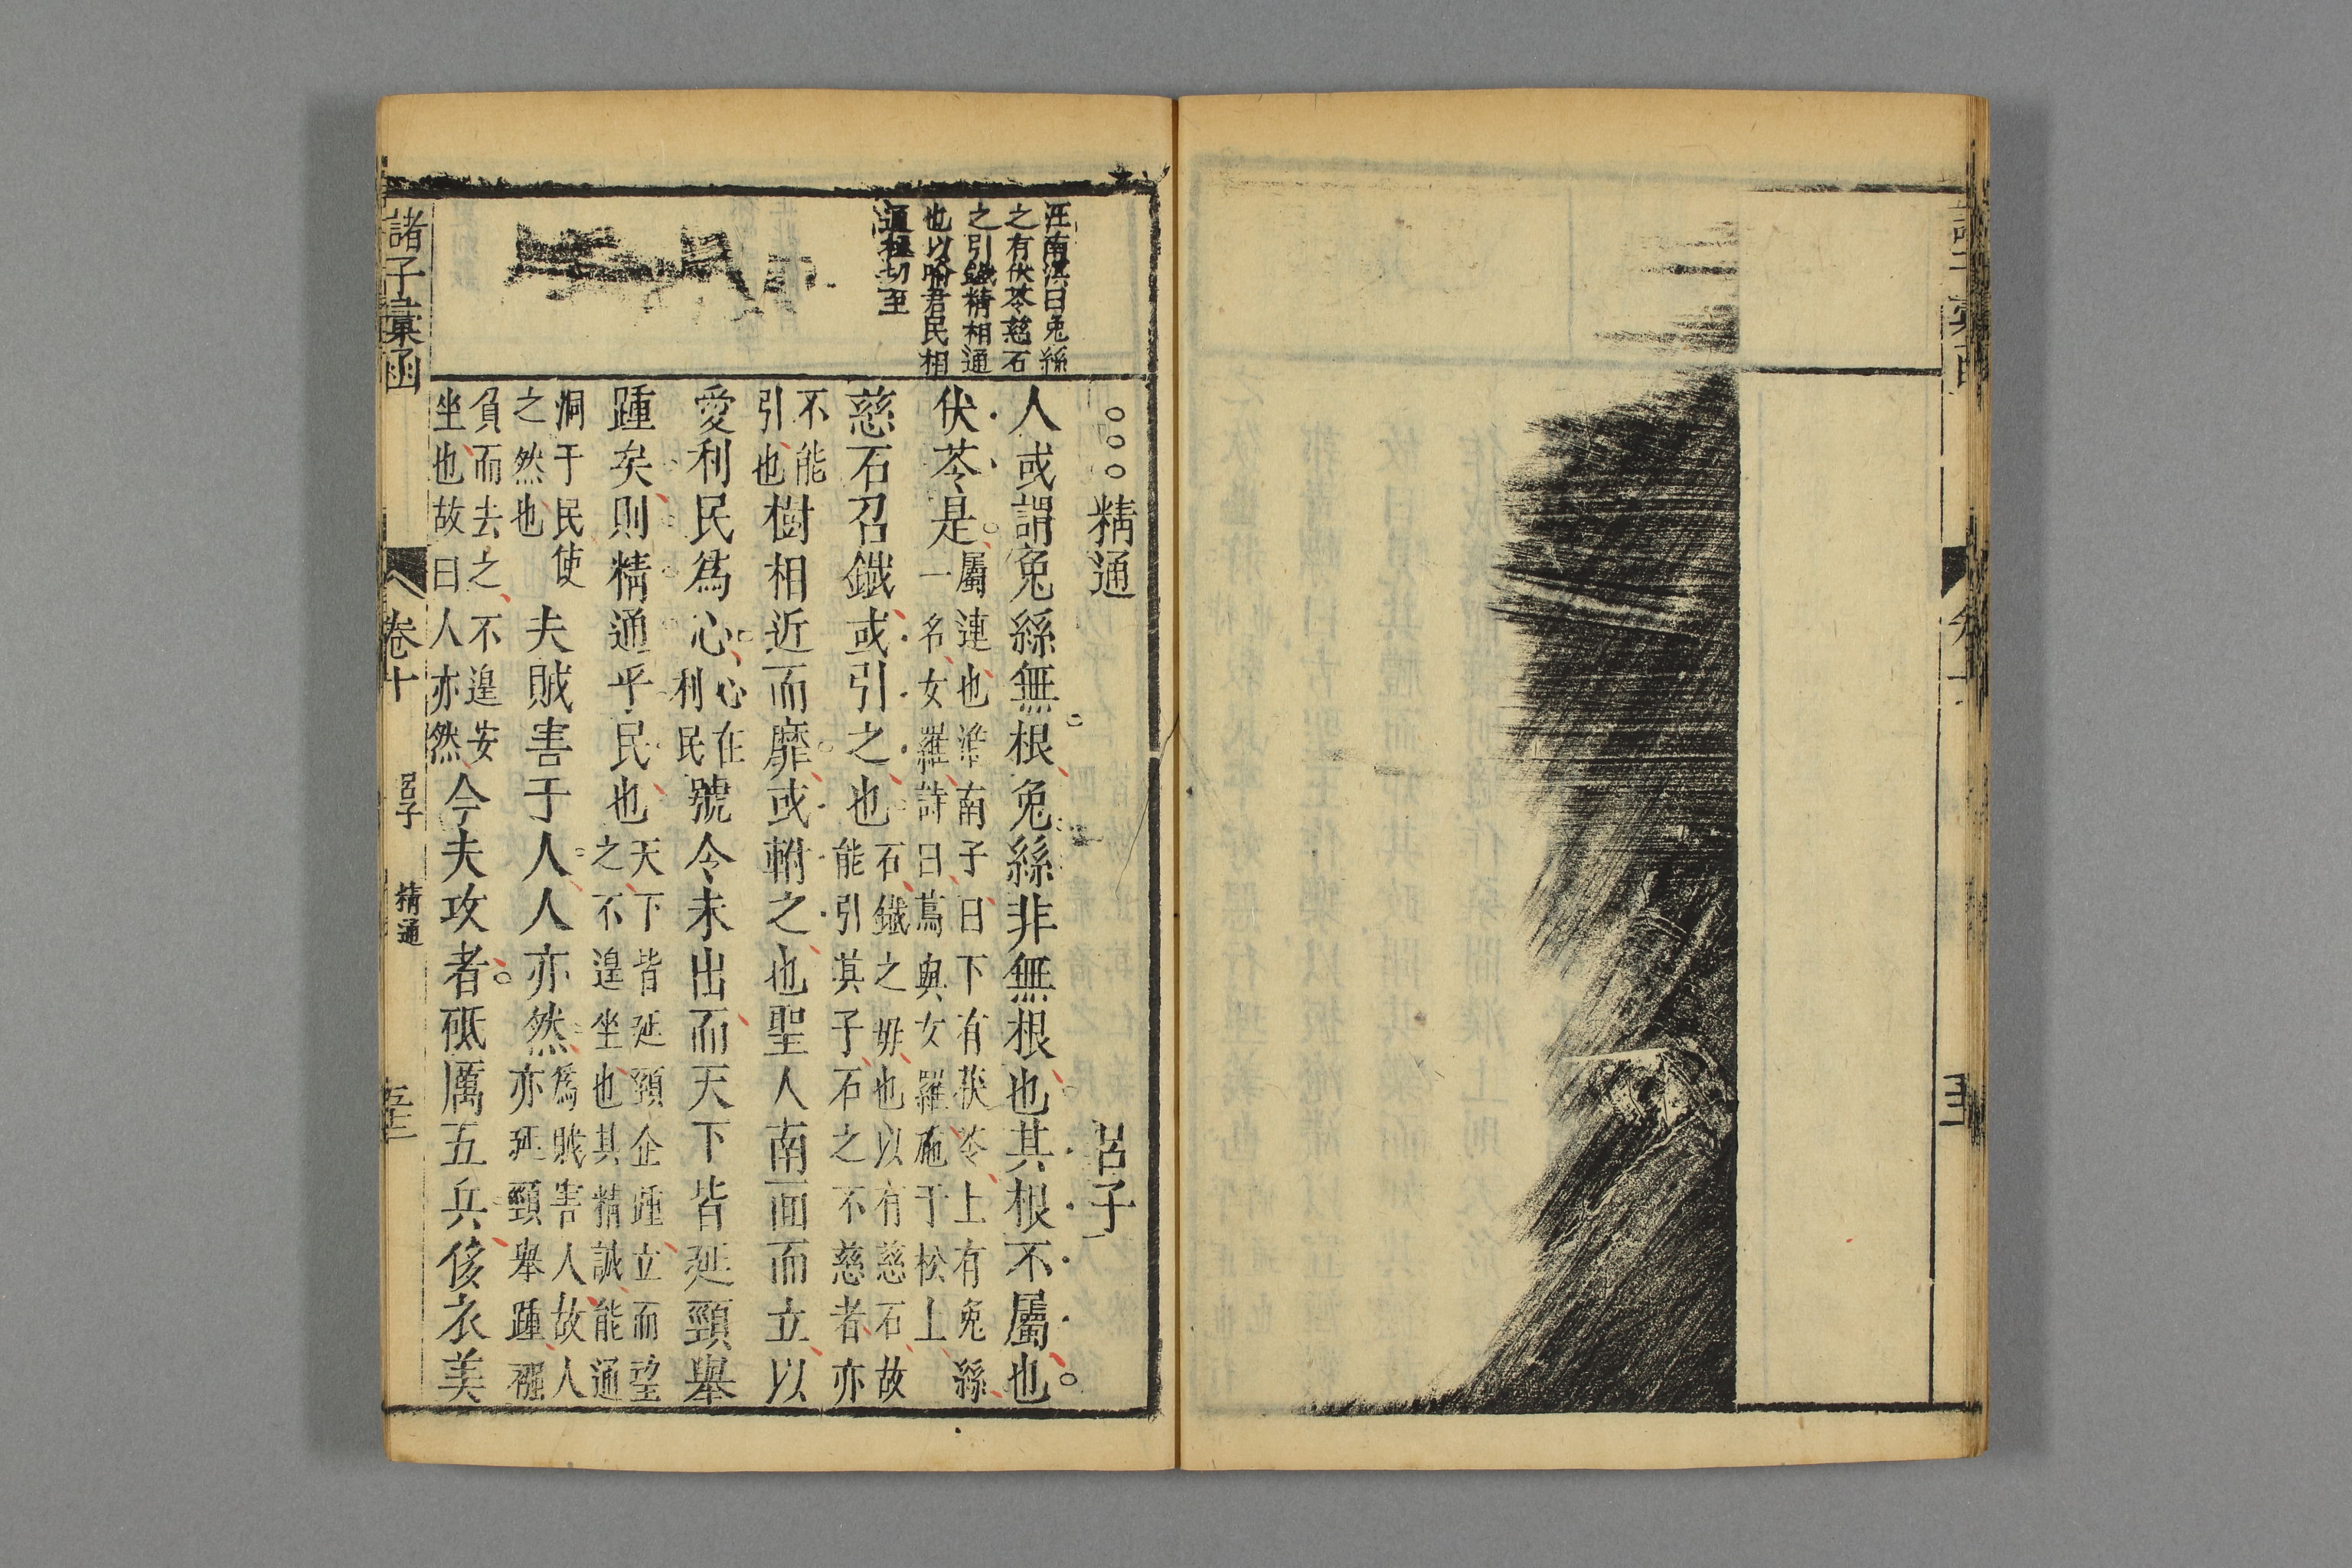 汪南溟曰兔絲
之有伏苓慈石
之引鐵精相通
也以喻君民相
通極切至
○○○精通 呂子
人或謂兔絲無根兔絲非無根也其根不屬也
伏苓是屬連也淮南子曰下有茯苓上有兔絲一名女羅詩曰蔦與女羅施于松上
慈石召鐵或引之也石鐵之毋也以有慈石故能引其子石之不慈者亦
不能引也樹相近而靡或軵之也聖人南面而立以
愛利民為心心在利民號令未出而天下皆延頸舉
踵矣則精通乎民也天下皆延頸企踵立而望之不遑坐也其精誠能通
洞于民使之然也夫賊害于人人亦然為賊害人故人亦延頸舉踵襁
負而去之不遑安坐也故曰人亦然今夫攻者砥厲五兵侈衣美
諸子彙函 卷十 呂子 精通